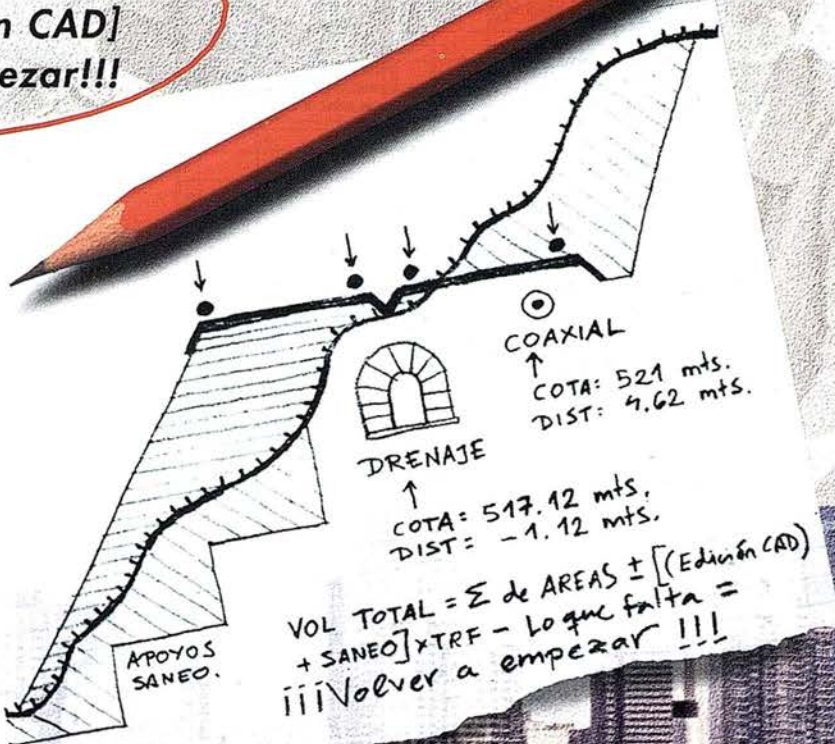 n CAD]
ezar!!!
COAXIAL
↑
COTA: 521 mts.
DIST: 4.62 mts.
DRENAJE
↑
COTA: 517.12 mts.
DIST: -1.12 mts.
APOYOS
SANEO.
VOL TOTAL = Σ de AREAS ± [(Edición CAD)
+ SANEO] x TRF - Lo que falta =
¡¡¡Volver a empezar !!!